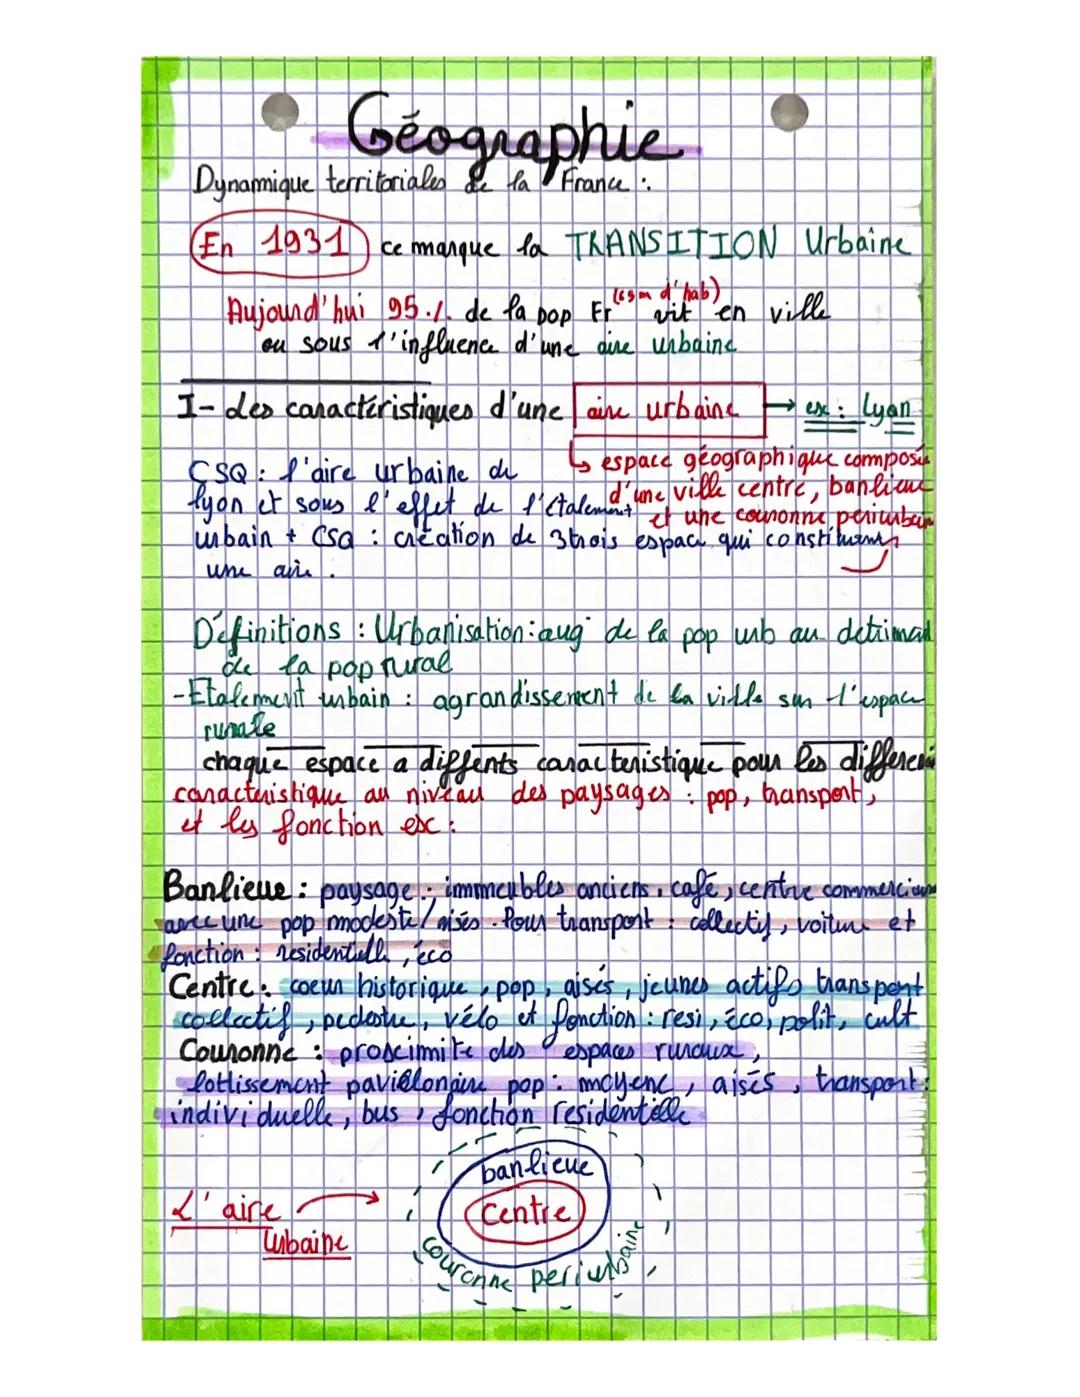 Géographie
Dynamique territoriales de la France :
En 1931 ce marque la TRANSITION Urbaine
(65m d'hab)
Aujourd'hui 95 ./. de la pop Fr vit en ville
ou sous l'influence d'une aire urbaine
I- des caractéristiques d'une aire urbaine → ex : Lyon
↳ espace géographique composé
d'une ville centre, banlieue
et une couronne periurbain
CSQ : l'aire urbaine de
lyon et sous l'effet de l'étalement
urbain + CSQ : création de 3trois espace qui constituent
une aire .
Définitions : Urbanisation : aug° de la pop urb au detrimant
de la pop rural
-Etalement urbain : agrandissement de la ville sur l'espace
rurale
chaque espace a diffents caracteristique pour les differen
caracteristique au niveau des paysages : pop, transport,
et les fonction ex :
Banlieue : paysage : immeubles anciens, café, centre commerciaux
avec une pop modeste/aisés. Pour transport : collectif, voiture et
fonction : residentielle, éco
Centre : coeur historique, pop, aisés, jeunes actifs transport
collectif, pedestre, vélo et fonction : resi, éco, polit, cult
Couronne : proscimite des espaces ruraux,
lottissement pavillonaire pop : moyene, aisés, transport :
individuelle, bus, fonction residentielle
banlieue
L'aire
Urbaine
Centre
couronne periurbaine